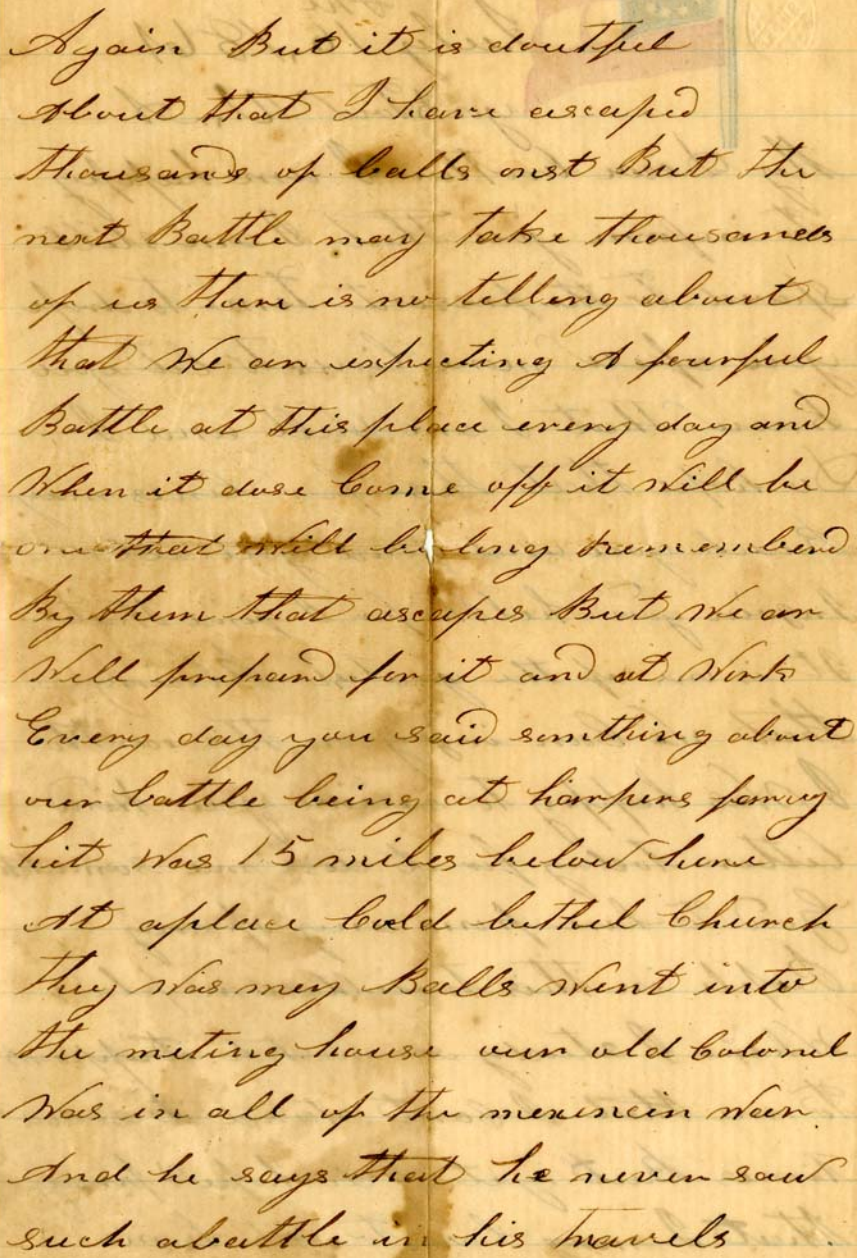 Again But it is doutful
About that I have ascaped
thousands of balls onst But the
next Battle may take thousands
of us thare is no telling about
that We ar expecting A powrful
Battle at this place every day and
When it dose Come off it will be
one that will be long rememberd
By them that ascapes But we ar
Well prepard for it and at Work
Every day you said somthing about
our battle being at harpers farry
hit was 15 miles below here
At aplace Cold bethel Church
they was meny Balls went into
the meting house our old Colonel
Was in all of the mexincin war
And he says that he never saw
such abattle in his travels